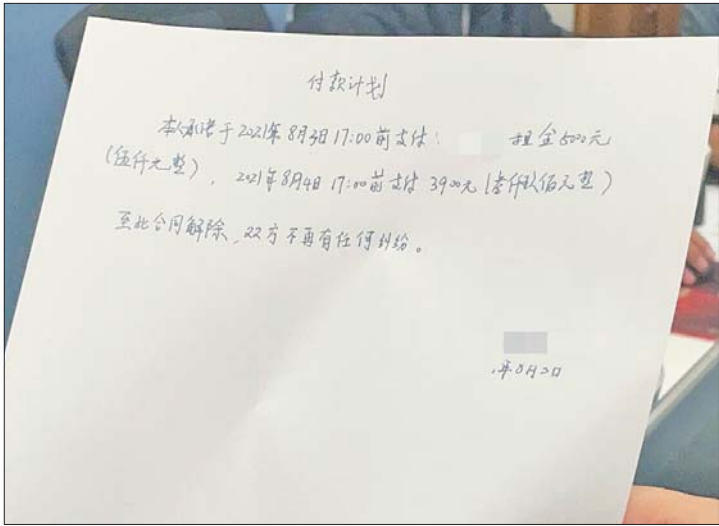 付款计划
本人承诺于2021年8月3日17:00前支付: 租金5000元
(伍仟元整), 2021年8月4日17:00前支付3900元(叁仟玖佰元整)
至此合同解除,双方不再有任何纠纷。
年8月2日